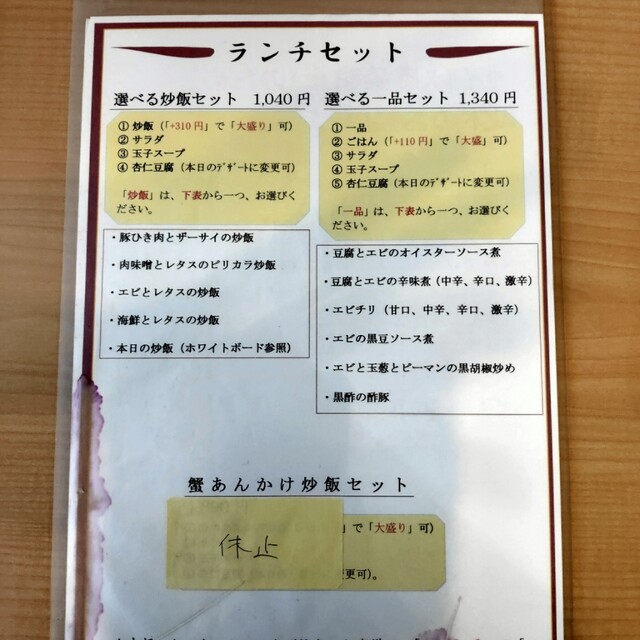 ランチセット
選べる炒飯セット 1,040 円
① 炒飯（「+310 円」で「大盛り」可）
② サラダ
③ 玉子スープ
④ 杏仁豆腐（本日のﾃﾞｻﾞｰﾄに変更可）
「炒飯」は、下表から一つ、お選びく
ださい。
・豚ひき肉とザーサイの炒飯
・肉味噌とレタスのピリカラ炒飯
・エビとレタスの炒飯
・海鮮とレタスの炒飯
・本日の炒飯（ホワイトボード参照）
選べる一品セット 1,340 円
① 一品
② ごはん（「+110 円」で「大盛」可）
③ サラダ
④ 玉子スープ
⑤ 杏仁豆腐（本日のﾃﾞｻﾞｰﾄに変更可）
「一品」は、下表から一つ、お選びく
ださい。
・豆腐とエビのオイスターソース煮
・豆腐とエビの辛味煮（中辛、辛口、激辛）
・エビチリ（甘口、中辛、辛口、激辛）
・エビの黒豆ソース煮
・エビと玉葱とピーマンの黒胡椒炒め
・黒酢の酢豚
蟹あんかけ炒飯セット
」で「大盛り」可）
休止
変更可）。